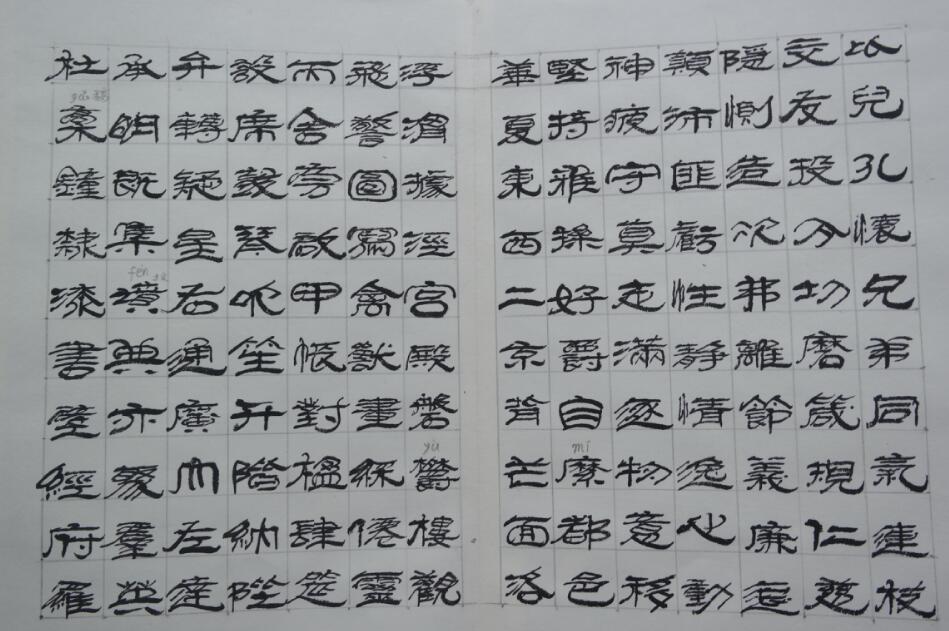 比兒孔懷兄弟同氣連枝
交友投分切磨箴規仁慈
隱惻造次弗離節義廉退
顛沛匪虧性靜情逸心動
神疲守真志滿逐物意移
堅持雅操好爵自縻都邑
mí
華夏東西二京背芒面洛
浮渭據涇宮殿磐鬱樓觀
yù
飛驚圖寫禽獸畫綵僊靈
丙舍旁啟甲帳對楹肆筵
設席鼓瑟吹笙升階納陛
弁轉疑星右通廣內左達
承明既集墳典亦聚羣英
fén
杜稾鐘隸漆書壁經府羅